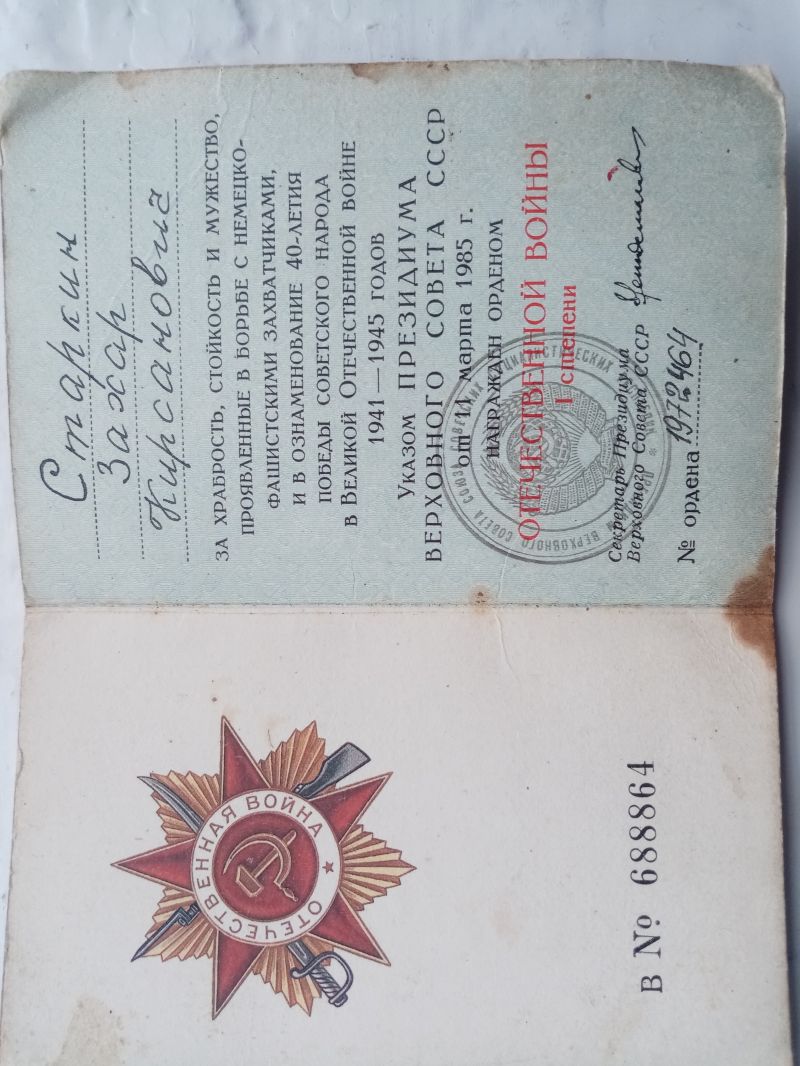 ОТЕЧЕСТВЕННАЯ ВОЙНА
В № 688864
Старкин
Захар
Кирсанович
ЗА ХРАБРОСТЬ, СТОЙКОСТЬ И МУЖЕСТВО,
ПРОЯВЛЕННЫЕ В БОРЬБЕ С НЕМЕЦКО-
ФАШИСТСКИМИ ЗАХВАТЧИКАМИ,
И В ОЗНАМЕНОВАНИЕ 40-ЛЕТИЯ
ПОБЕДЫ СОВЕТСКОГО НАРОДА
В ВЕЛИКОЙ ОТЕЧЕСТВЕННОЙ ВОЙНЕ
1941—1945 ГОДОВ
УКАЗОМ ПРЕЗИДИУМА
ВЕРХОВНОГО СОВЕТА СССР
от 11 марта 1985 г.
НАГРАЖДЕН ОРДЕНОМ
ОТЕЧЕСТВЕННОЙ ВОЙНЫ
I степени
Секретарь Президиума
Верховного Совета СССР
№ ордена 1972464
ВЕРХОВНОГО СОВЕТА СОЮЗА СОВЕТСКИХ СОЦИАЛИСТИЧЕСКИХ